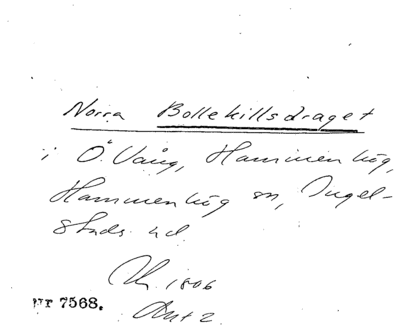 Norra Bollekillsdraget
i Ö. Vång, Hammenhög,
Hammenhög sn, Ingel-
stads hd
1806
Nr 7568.